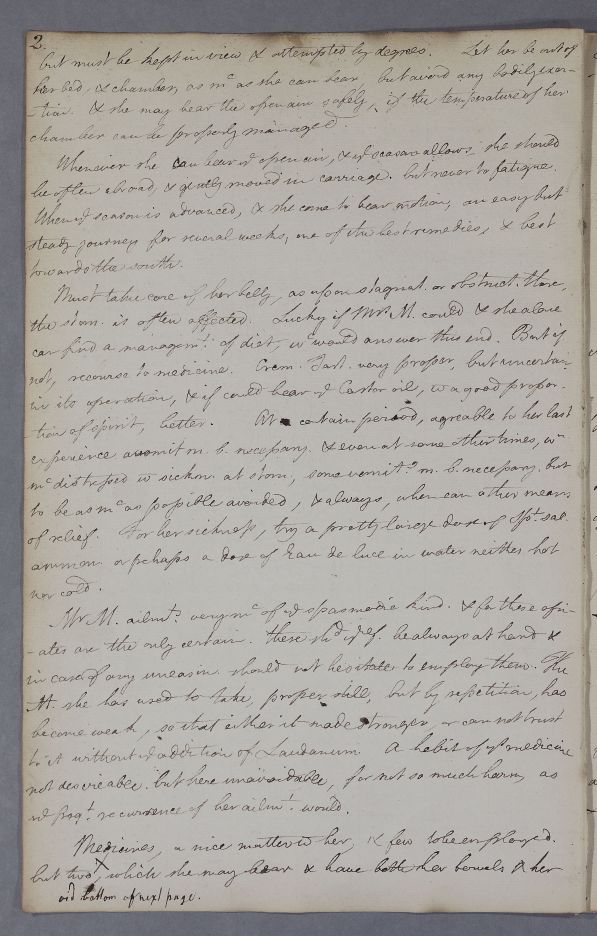 2.
but must be kept in view & attempted by degrees. Let her be out of
her bed, & chamber, as mc as she can bear but avoid any bodily exer-
-tion. & she may bear the open air safely, if the temperature of her
chamber can be properly managed.
Whenever she can bear ye open air, & ye season allows, she should
be often abroad, & gently moved in carriage. but never to fatigue.
When ye season is advanced, & she come to bear motion, an easy but
steady journey for several weeks, one of the best remedies, & best
towards the south.
Must take care of her belly, as upon stagnat. or obstruct. there,
the stom. is often affected. Lucky if Mrs. M. could & she alone
can find a managemt. of diet, wc would answer this end. But if
not, recourse to medicine. Crem. Tart. very proper, but uncertain
in its operation, & if could bear ye Castor oil, w a good propor-
tion of spirit, better. At a certain period, agreable to her last
experience a vomit m. b. necessary. & even at some other times, wn
mc distressed w sickn. at stom, some vomitg. m. b. necessary. but
to be as mc as possible avoided, & always, when can other means
of relief. For her sickness, try a pretty large dose of Spt. sal.
ammon. or perhaps a dose of Eau de luce in water neither hot
nor cold.
Mrs M. ailmts. very mc of ye spasmodic kind. & for these opi-
-ates are the only certain. these shd. yrf. be always at hand &
in case of any uneasin. should not hesitate to employ them. The
she has used to take, proper still, but by repetition, has
become weak, so that either it made stronger, or can not trust
to it without ye addition of Laudanum. A habit of ys medicine
not desireable. but here unavoidable, for not so much harm, as
ye freqt. recurrence of her ailmt. would.
Medicines, a nice matter to her, & few to be employed.
but two, which she may bear & have both her bowels & her
vid bottom of next page.